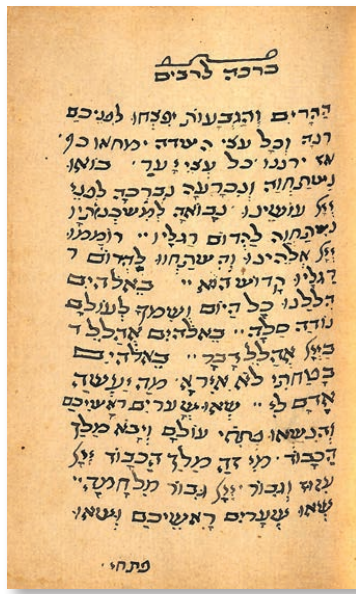 ברכה לרבים
ההרים והגבעות יפצחו לפניכם
רנה וכל עצי השדה ימחאו כף
אז ירננו כל עצי יער בואו
נשתחוה ונכרעה נברכה לפני
ייי עושינו נבואה למשכנותיו
נשתחוה להדום רגליו ״ רוממו
ייי אלהינו והשתחוו להדום ר
רגליו קדוש הוא ״ באלהים
הללנו כל היום ושמך לעולם
נודה סלה ״ באלהים אהלל ד
בייי אהלל דבר ״ באלהים
בטחתי לא אירא מה יעשה
אדם לי ״ שאו שערים ראשיכם
והנשאו פתחי עולם ויבא מלך
הכבוד מי זה מלך הכבוד ייי
עזוז וגבור ייי גבור מלחמה ״
שאו שערים ראשיכם ושאו
פתחי